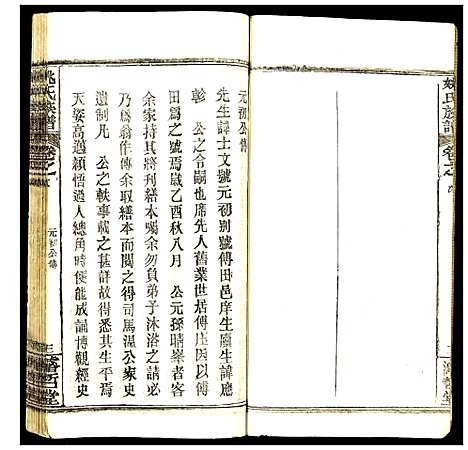 姚氏族譜
卷之
元初公傳
先生諱士文號元初別號傳田邑庠生廩生諱應
軫　公之令嗣也席先人舊業世居傅庄因以傅
田爲之號焉歲乙酉秋八月　公元孫晴峯者客
余家持其將刋繕本囑余勿負弟子沐浴之請必
乃爲翁作傳余取繕本而閱之得司馬溫公家史
遺制凡　公之軼事載之甚詳故得悉其生平焉
天姿高邁穎悟過人總角時便能成誦博觀經史
姚氏族譜
卷之
元初公傳
三